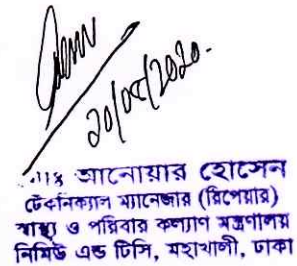 20/05/2020.
মোঃ আনোয়ার হোসেন
টেকনিক্যাল ম্যানেজার (রিপেয়ার)
স্বাস্থ্য ও পরিবার কল্যাণ মন্ত্রণালয়
নিমিউ এন্ড টিসি, মহাখালী, ঢাকা